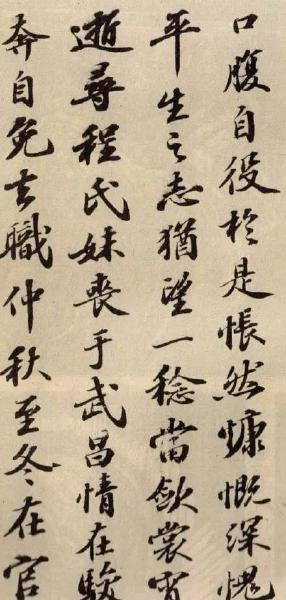 口腹自役於是悵然慷慨深愧
平生之志猶望一稔當歛裳宵
逝尋程氏妹喪于武昌情在駿
奔自免去職仲秋至冬在官